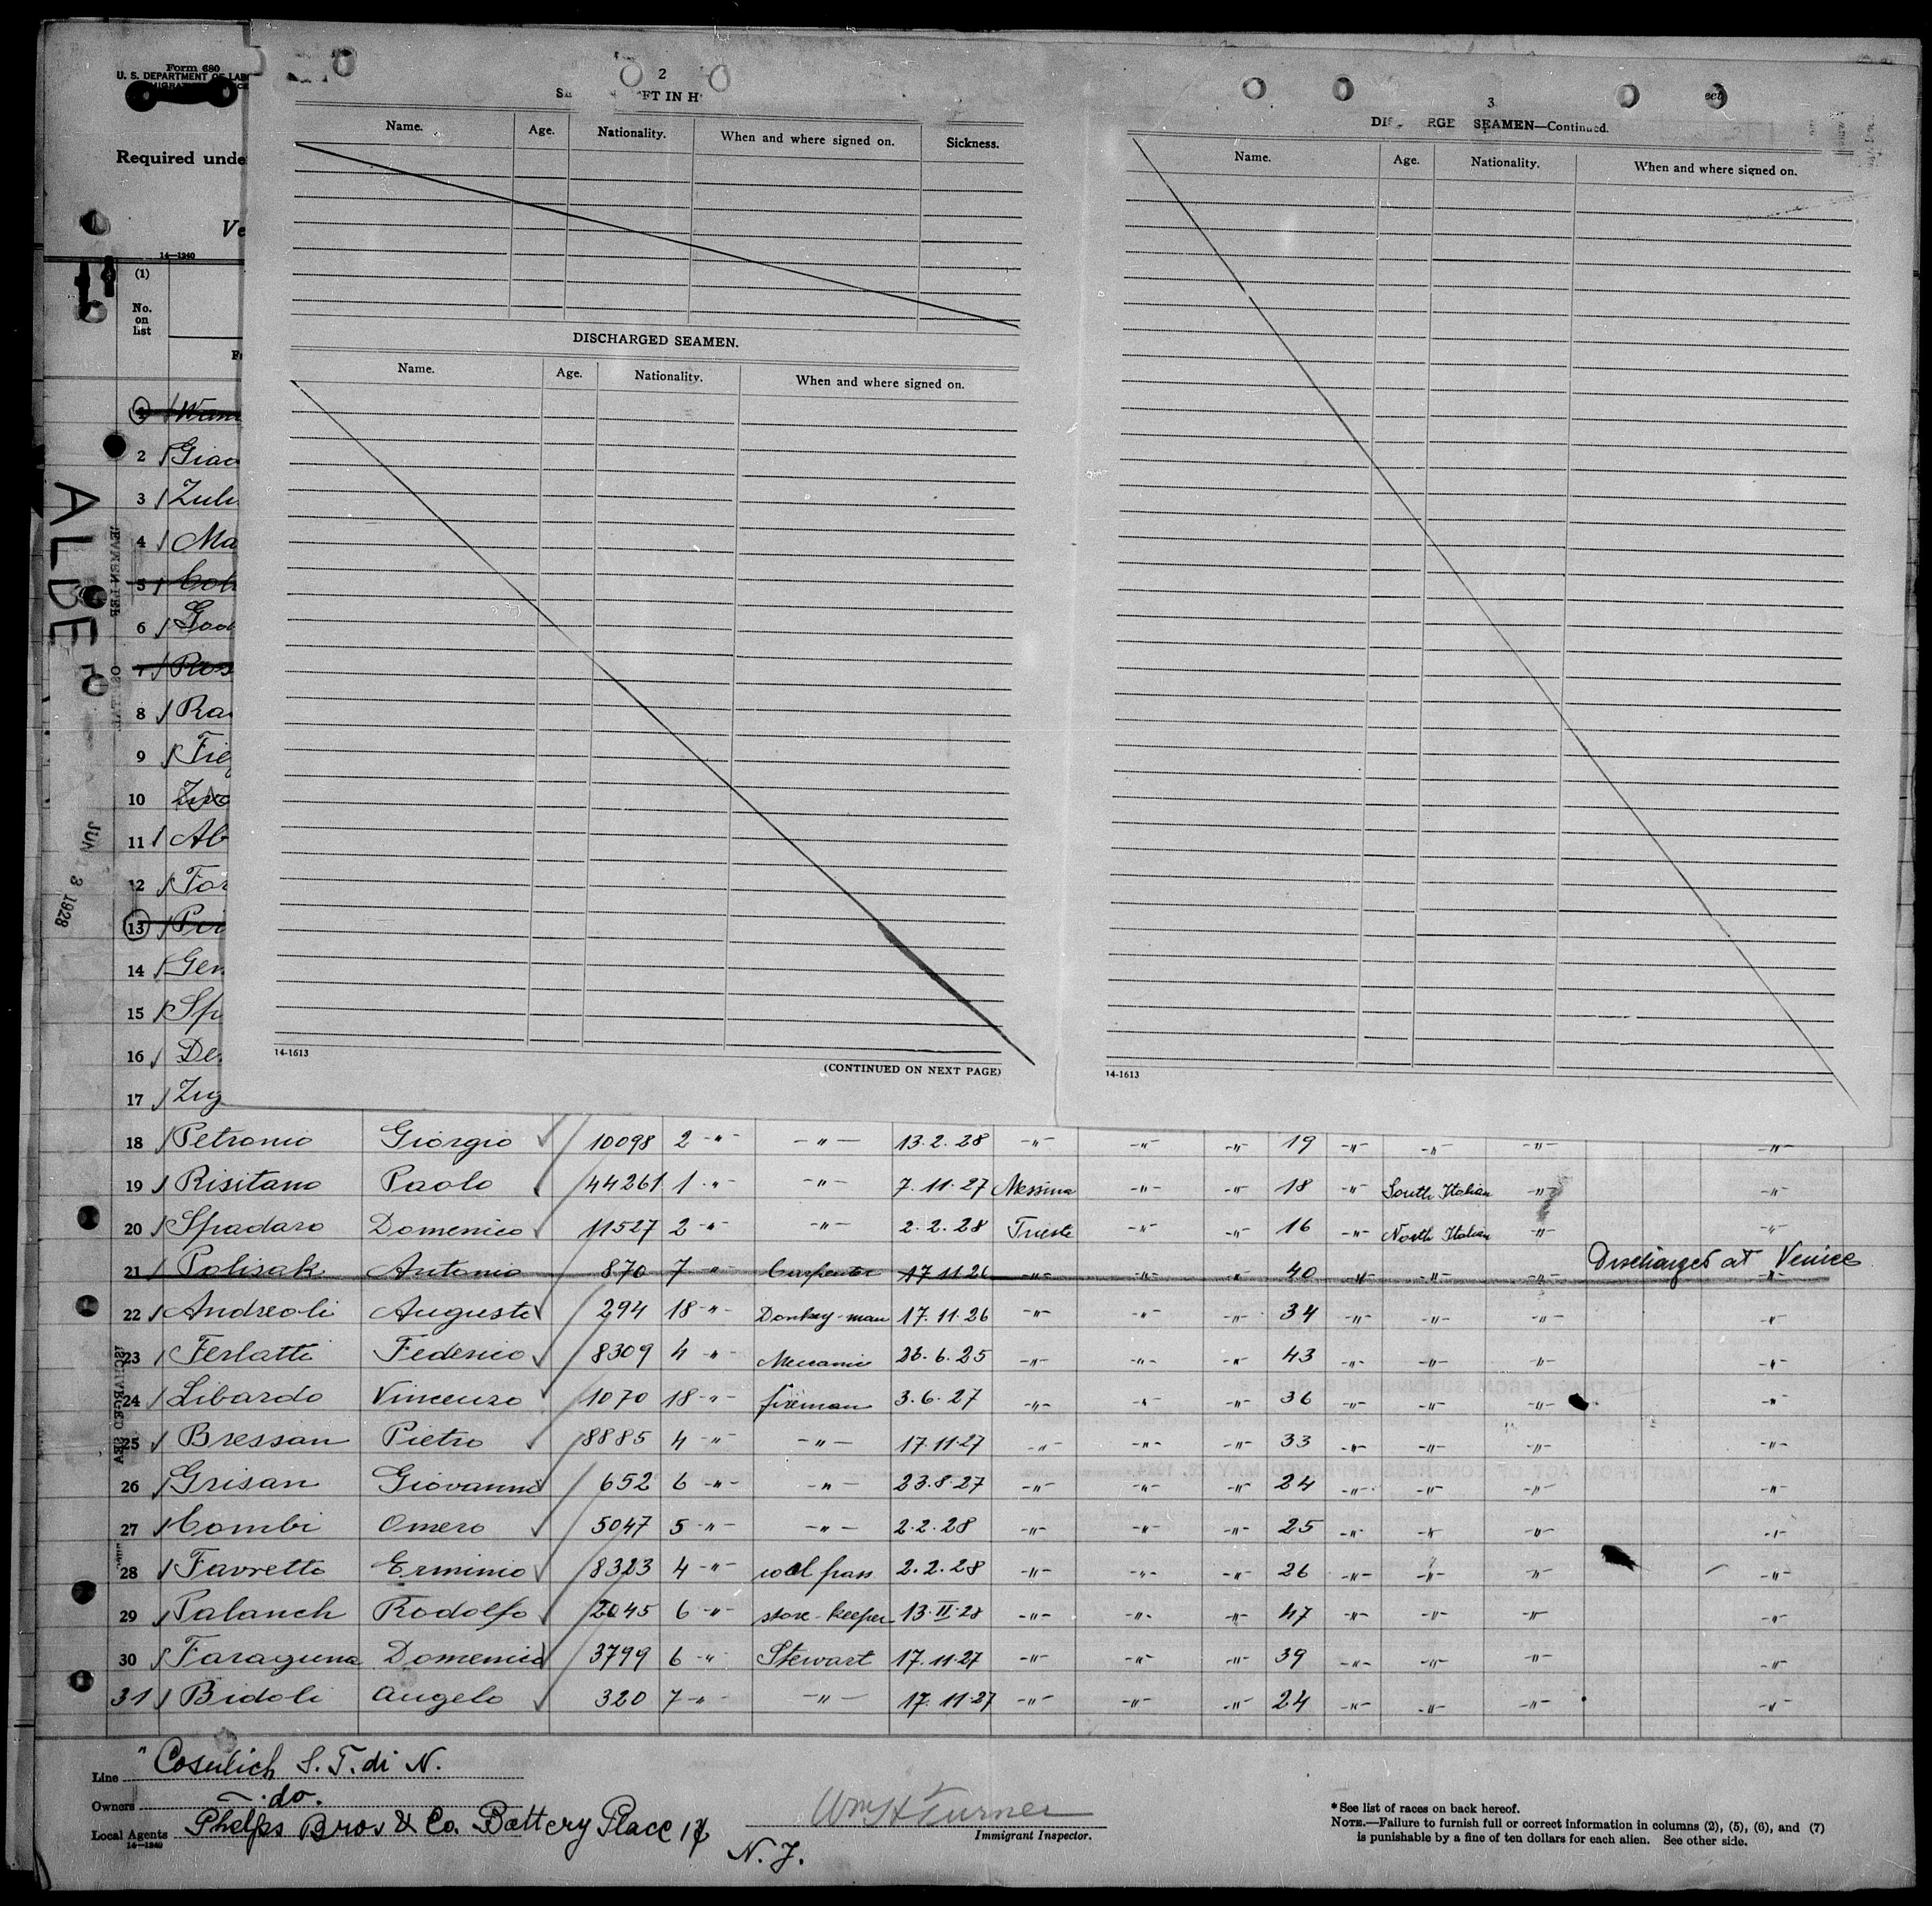 Form 680
U. S. DEPARTMENT OF LAB
Required unde
Ve
14—1240
(1)
No.
on
list
2
FT IN H
Name. Age. Nationality. When and where signed on. Sickness.
DISCHARGED SEAMEN.
Name. Age. Nationality. When and where signed on.
14-1613
(CONTINUED ON NEXT PAGE)
3
DIS RGE SEAMEN—Continued.
Name. Age. Nationality. When and where signed on.
14-1613
ALDE
JUN 3 1928
2 Giac
3 Zuli
4 Ma
5 Cob
6 Good
7 Ros
8 Ra
9 Fie
10
11 Ab
12 Tor
13 Per
14 Gen
15 Sp
16 De
17 Zug
18 Petronio Giorgio 10098 2 -"- -"- 13.2.28 -"- -"- -"- 19 -"- -"- -"- -"-
19 Risitano Paolo 44261 1 -"- -"- 7.11.27 Messina -"- -"- 18 -"- South Italian -"- -"-
20 Spadaro Domenico 11527 2 -"- 2.2.28 Trieste -"- -"- 16 -"- North Italian -"- -"-
21 Polisak Antonio 870 7 -"- Carpenter 17 11 26 -"- -"- -"- 40 -"- -"- -"- Discharged at Venice -"-
22 Andreoli Augusto 294 18 -"- Donkey-man 17.11.26 -"- -"- -"- 34 -"- -"- -"- -"-
23 Ferlatti Federico 8309 4 -"- Mecanic 26.6.25 -"- -"- -"- 43 -"- -"- -"- -"-
24 Libardo Vincenzo 1070 18 -"- fireman 3.6.27 -"- -"- -"- 36 -"- -"- -"- -"-
25 Bressan Pietro 8885 4 -"- -"- 17.11.27 -"- -"- -"- 33 -"- -"- -"- -"-
26 Grisan Giovanni 652 6 -"- -"- 23.8.27 -"- -"- -"- 24 -"- -"- -"- -"-
27 Combi Omero 5047 5 -"- -"- 2.2.28 -"- -"- -"- 25 -"- -"- -"- -"-
28 Favretto Erminio 8323 4 -"- coal pass 2.2.28 -"- -"- -"- 26 -"- -"- -"- -"-
29 Palanch Rodolfo 2045 6 -"- store-keeper 13.II.28 -"- -"- -"- 47 -"- -"- -"- -"-
30 Faraguna Domenico 3799 6 -"- Stewart 17.11.27 -"- -"- -"- 39 -"- -"- -"- -"-
31 Bidoli Angelo 320 7 -"- -"- 17.11.27 -"- -"- -"- 24 -"- -"- -"- -"-
Line "Cosulich S.T. di N.
Owners do.
Local Agents Phelps Bros & Co. Battery Place 17
14—1240
N.J.
Wm H Turner
Immigrant Inspector.
*See list of races on back hereof.
NOTE.—Failure to furnish full or correct information in columns (2), (5), (6), and (7)
is punishable by a fine of ten dollars for each alien. See other side.